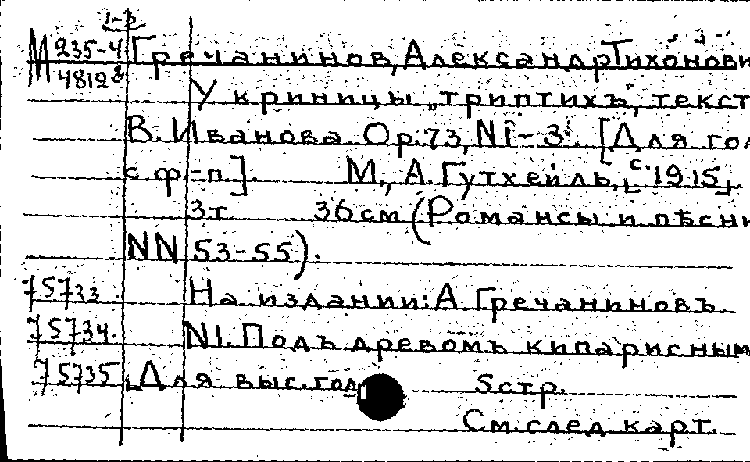 1-3
М 235-4 Гречанинов, Александр Тихонови
48128 У криницы „триптихъ", текст
В. Иванова. Op. 73, N1-3. [Для гол
с ф-п]. М., А. Гутхейль, [с. 1915].
3 т 36 см (Романсы и пѣсни
NN 53-55).
75733 На издании: А. Гречаниновъ.
75734. N1. Подъ древомъ кипариснымъ
75735 Для выс. гол 5 стр.
См. след карт.